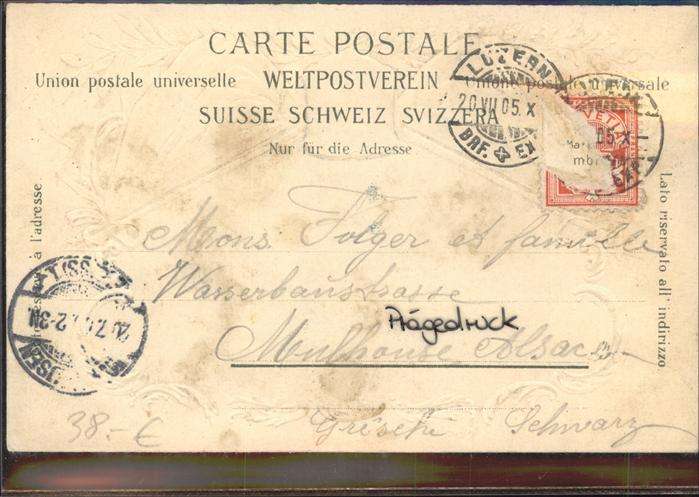 CARTE POSTALE
Union postale universelle WELTPOSTVEREIN Unione postale universale
SUISSE SCHWEIZ SVIZZERA
Nur für die Adresse
LUZERN
20.VII.05.X
BRF. EX
05.X
Mrons. Folger et famille
Wasserbaustrasse
Prägedruck
Mulhouse Alsace
38.-€
Grischi Schwarz
à l'adresse
Lato riservato all' indirizzo